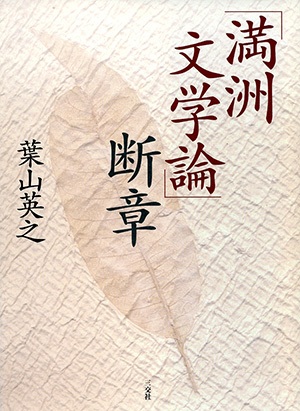 「満洲
文学論」
断章
葉山英之
三交社